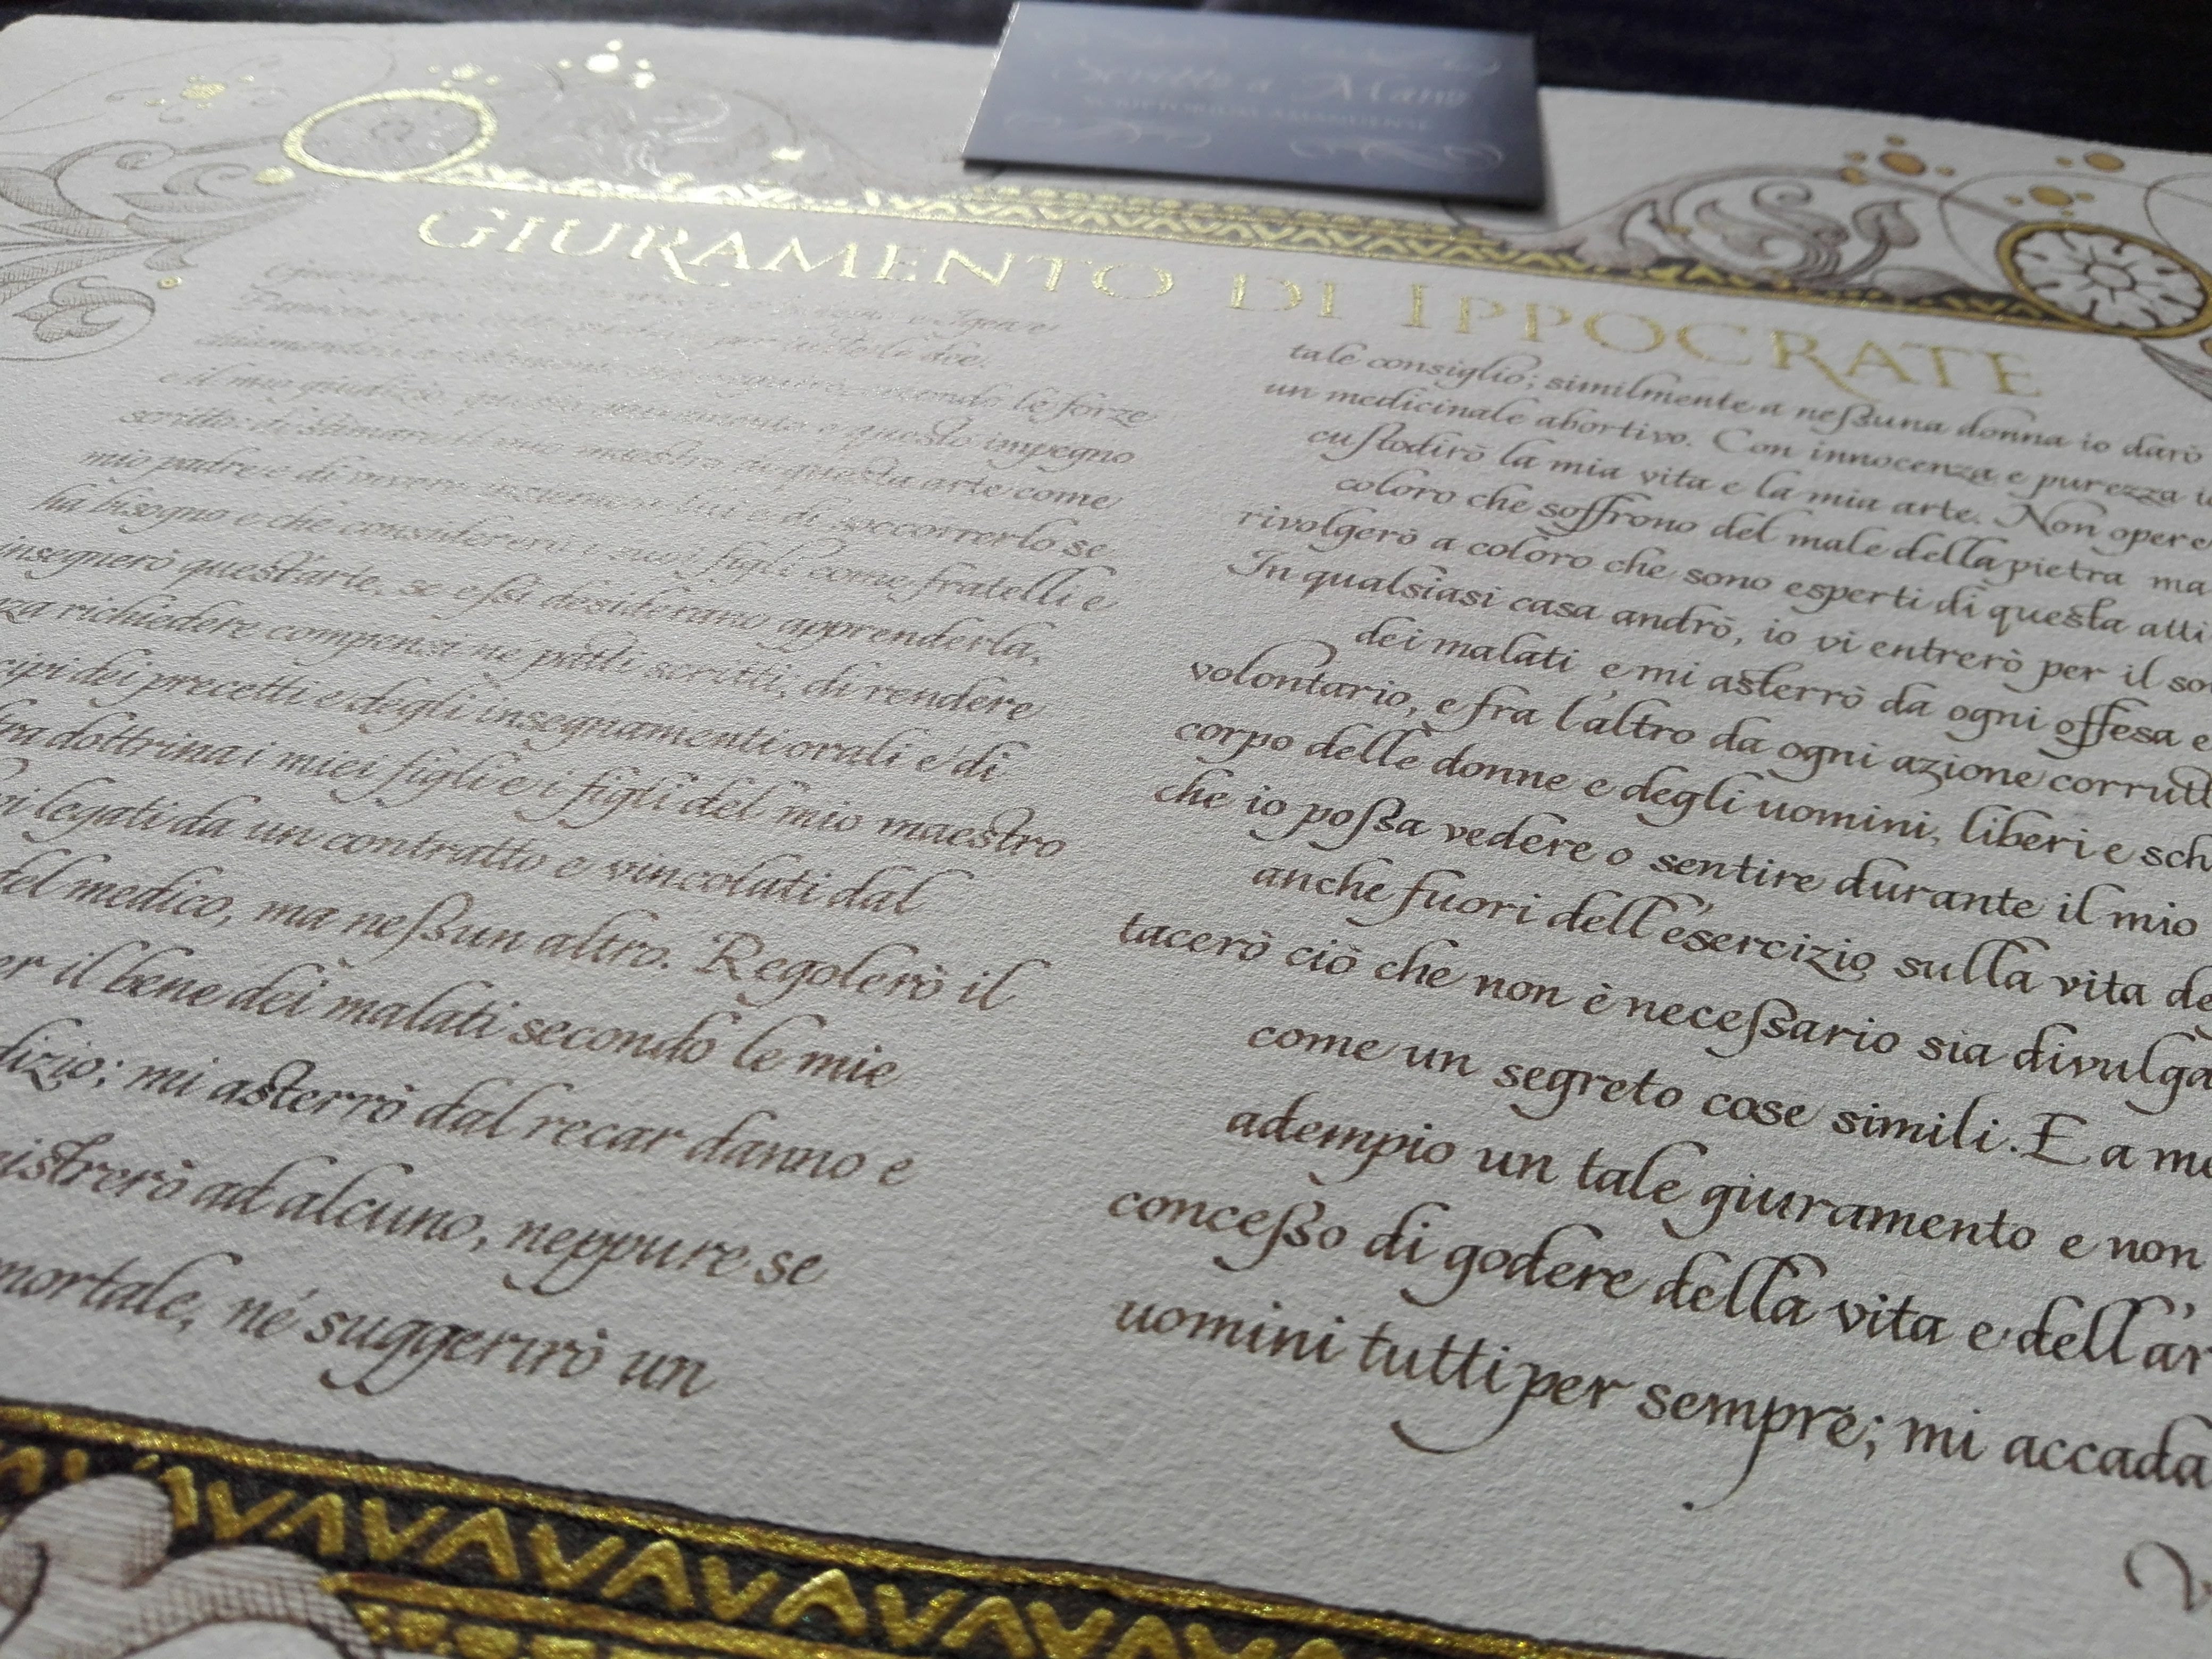 Scritto a Mano
GIURAMENTO DI IPPOCRATE
per testi le dee,
secondo le forze
e il mio giudizio, questo giuramento e questo impegno
scritto: di stimare il mio maestro di questa arte come
mio padre e di vivere insieme a lui e di soccorrerlo se
ha bisogno e che considererò i suoi figli come fratelli e
insegnerò quest'arte, se essi desiderano apprenderla,
richiedere compensi né patti scritti, di rendere
dei precetti e degli insegnamenti orali e di
dottrina i miei figli e i figli del mio maestro
legati da un contratto e vincolati dal
del medico, ma neſsun altro. Regolerò il
il bene dei malati secondo le mie
mi asterrò dal recar danno e
ad alcuno, neppure se
mortale, né suggerirò un
tale consiglio; similmente a neſsuna donna io darò
un medicinale abortivo. Con innocenza e purezza
cuſtodirò la mia vita e la mia arte. Non
coloro che soffrono del male della pietra ma
rivolgerò a coloro che sono esperti di questa
In qualsiasi casa andrò, io vi entrerò per il
dei malati e mi asterrò da ogni offesa e
volontario, e fra l'altro da ogni azione
corpo delle donne e degli uomini, liberi e
che io poſsa vedere o sentire durante il mio
anche fuori dell'esercizio sulla vita
tacerò ciò che non è neceſsario sia
come un segreto cose simili. E a
adempio un tale giuramento e non
conceſso di godere della vita e
uomini tutti per sempre; mi accada